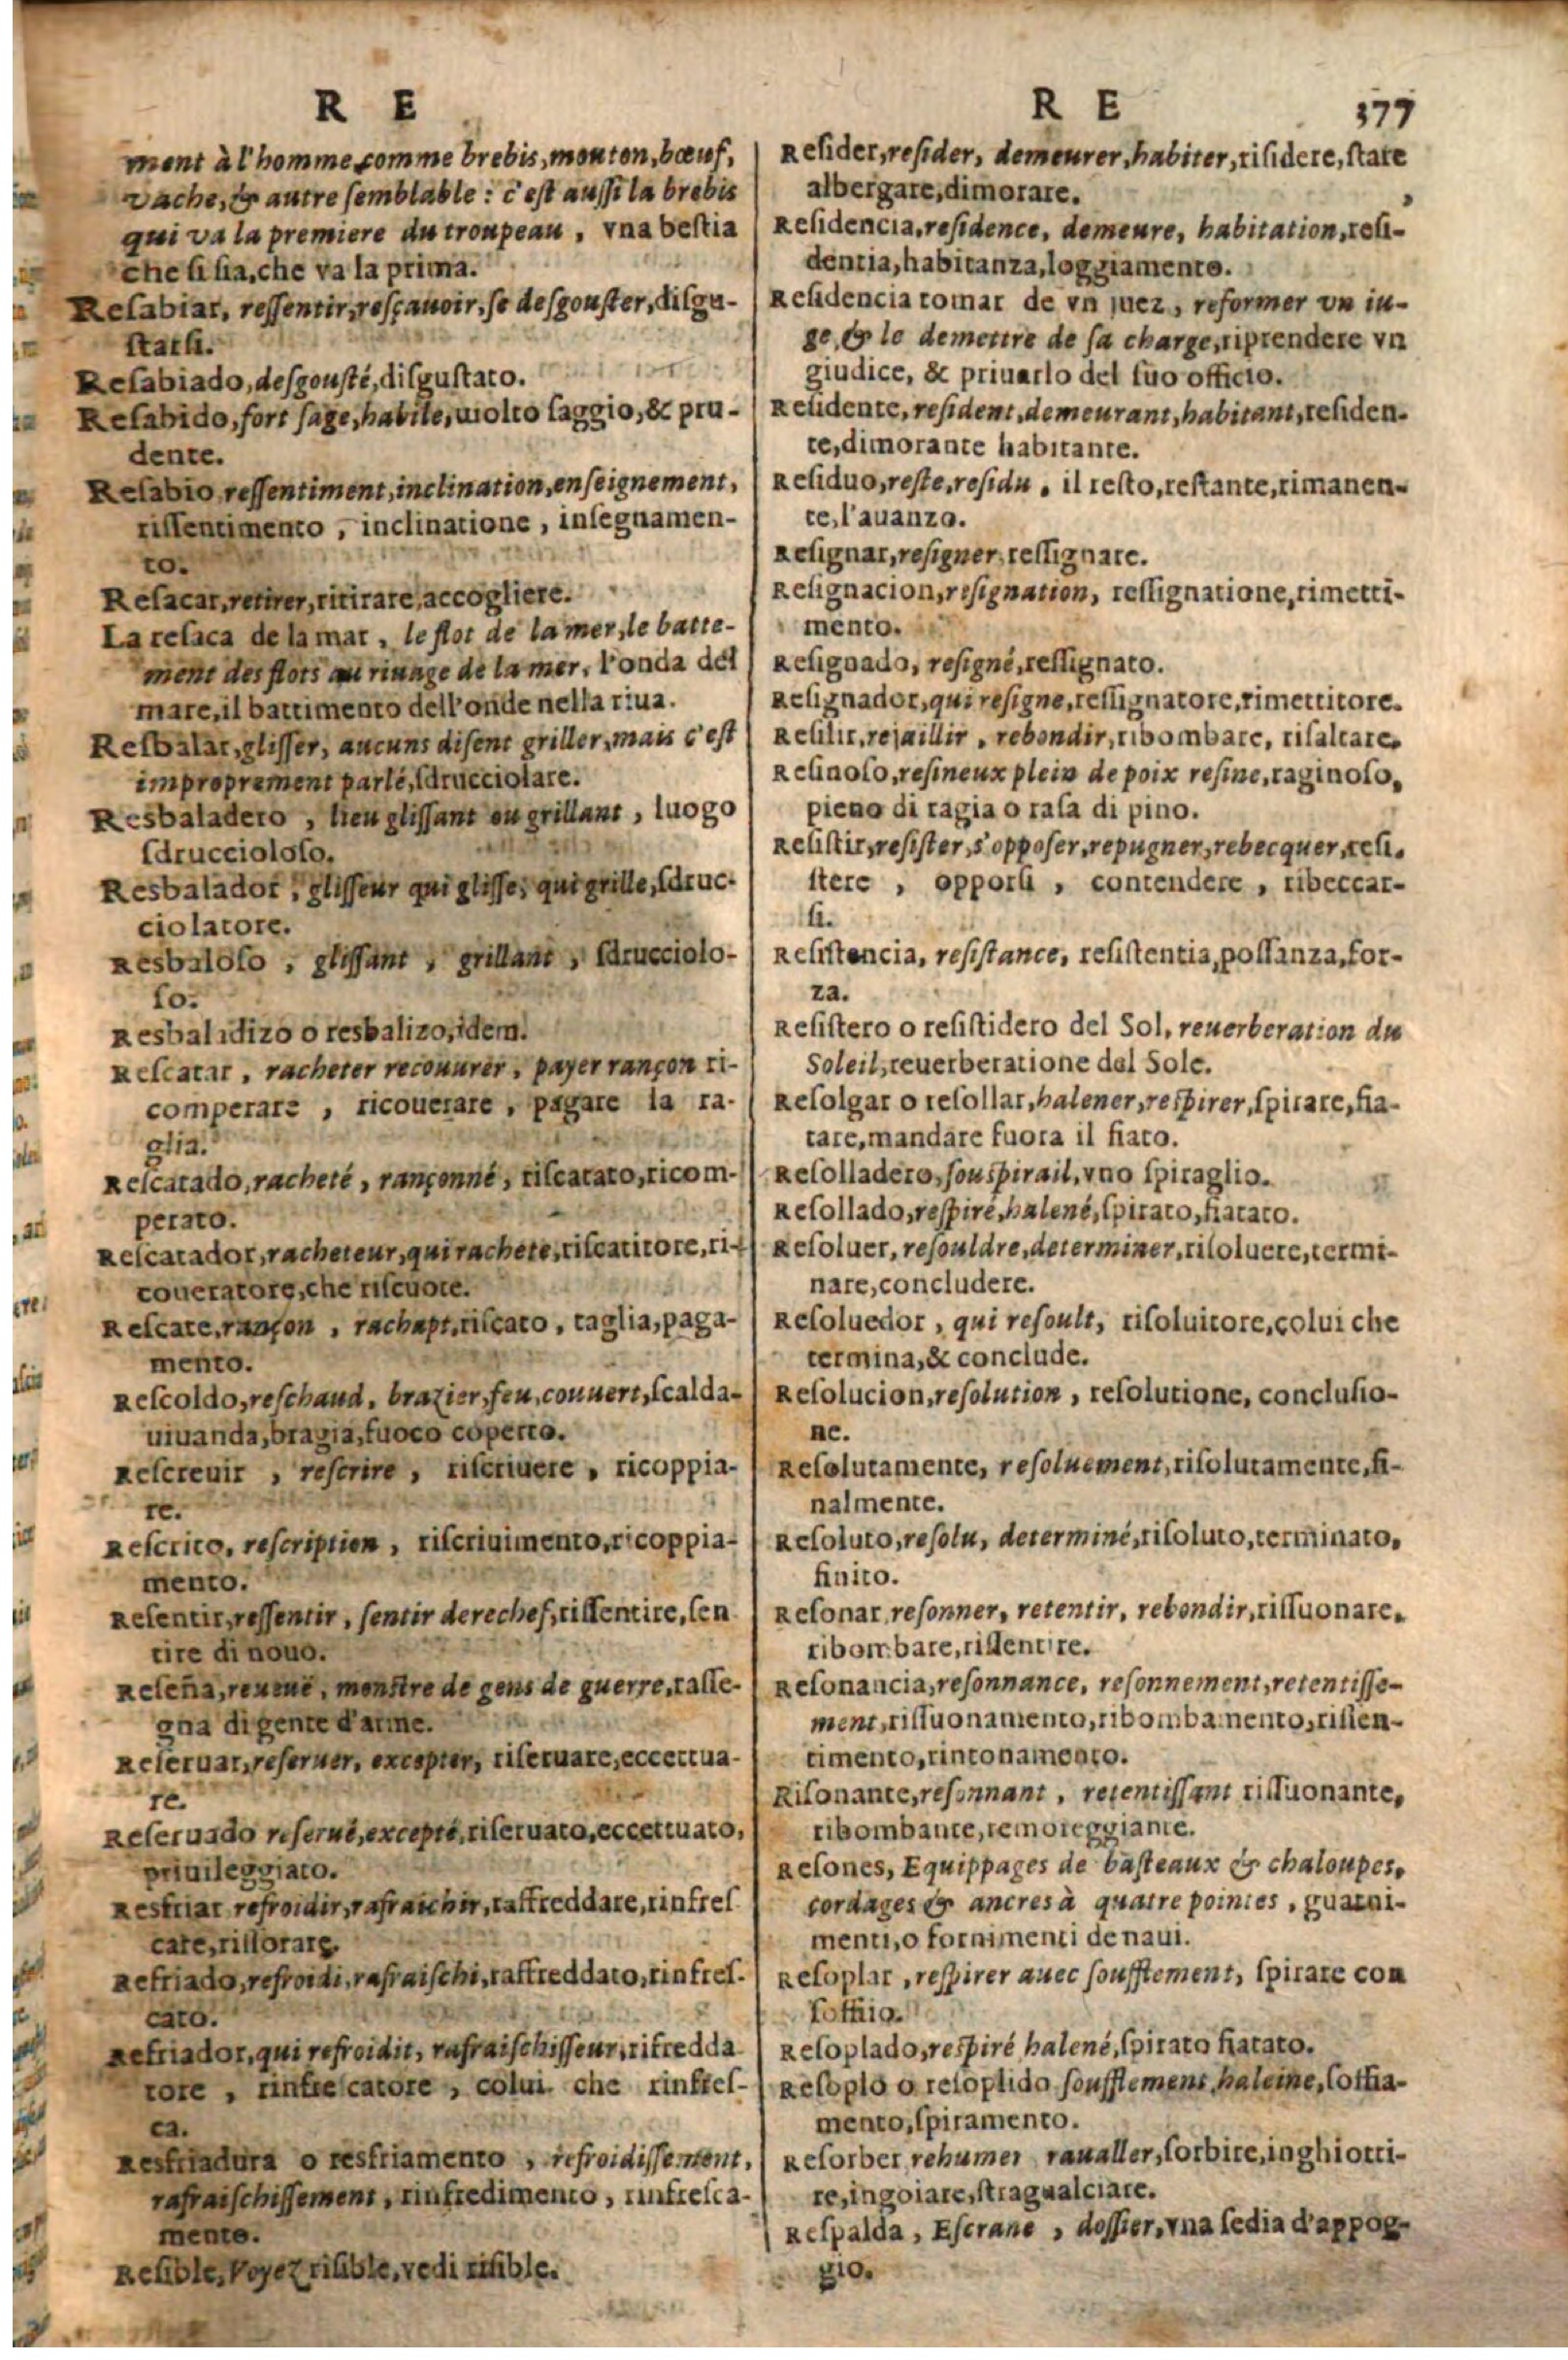 R E
ment à l'homme comme brebis, mouton, bœuf,
vache, & autre ſemblable : c'eſt auſſi la brebis
qui va la premiere du troupeau, vna beſtia
che ſi ſia, che va la prima.
Reſabiar, reſſentir, reſçauoir, ſe deſgouſter, diſgu-
ſtarſi.
Reſabiado, deſgouſté, diſguſtato.
Reſabido, fort ſage, habile, molto ſaggio, & pru-
dente.
Reſabio reſſentiment, inclination, enſeignement,
riſſentimento, inclinatione, inſegnamen-
to.
Reſacar, retirer, ritirare, accogliere.
La reſaca de la mar, le flot de la mer, le batte-
ment des flots au riuage de la mer, l'onda del
mare, il battimento dell'onde nella riua.
Reſbalar, gliſſer, aucuns diſent griller, mais c'eſt
improprement parlé, ſdrucciolare.
Resbaladero, lieu gliſſant ou grillant, luogo
ſdruccioloſo.
Resbalador, gliſſeur qui gliſſe, qui grille, ſdruc-
ciolatore.
Resbaloſo, gliſſant, grillant, ſdrucciolo-
ſo.
Resbalidizo o resbalizo, idem.
Reſcatar, racheter recouurer, payer rançon ri-
comperare, ricouerare, pagare la ta-
glia.
Reſcatado, racheté, rançonné, riſcatato, ricom-
perato.
Reſcatador, racheteur, qui rachete, riſcatitore, ri-
coueratore, che riſcuote.
Reſcate, rançon, rachapt, riſcato, taglia, paga-
mento.
Reſcoldo, reſchaud, brazier, feu, couuert, ſcalda-
uiuanda, bragia, fuoco coperto.
Reſcreuir, reſcrire, riſcriuere, ricoppia-
re.
Reſcrito, reſcription, riſcriuimento, ricoppia-
mento.
Reſentir, reſſentir, ſentir derechef, riſſentire, ſen
tire di nouo.
Reſeña, reueuë, monſtre de gens de guerre, raſſe-
gna di gente d'arme.
Reſeruar, reſeruer, excepter, riſeruare, eccettua-
re.
Reſeruado reſerué, excepté, riſeruato, eccettuato,
priuileggiato.
Resfriar refroidir, rafraichir, raffreddare, rinfreſ
care, riſtorare.
Refriado, refroidi, rafraiſchi, raffreddato, rinfreſ-
cato.
Refriador, qui refroidit, rafraiſchiſſeur, rifredda
tore, rinfreſcatore, colui che rinfreſ-
ca.
Resfriadura o resfriamento, refroidiſſement,
rafraiſchiſſement, rinfredimento, rinfreſca-
mento.
Reſible, Voyez riſible, vedi riſible.
R E 377
Reſider, reſider, demeurer, habiter, riſidere, ſtare
albergare, dimorare.
Reſidencia, reſidence, demeure, habitation, reſi-
dentia, habitanza, loggiamento.
Reſidencia tomar de vn juez, reformer vn iu-
ge, & le demettre de ſa charge, riprendere vn
giudice, & priuarlo del ſuo officio.
Reſidente, reſident, demeurant, habitant, reſiden-
te, dimorante habitante.
Reſiduo, reſte, reſidu, il reſto, reſtante, rimanen-
te, l'auanzo.
Reſignar, reſigner, reſſignare.
Reſignacion, reſignation, reſſignatione, rimetti-
mento.
Reſignado, reſigné, reſſignato.
Reſignador, qui reſigne, reſſignatore, rimettitore.
Reſilir, rejaillir, rebondir, ribombare, riſaltare.
Reſinoſo, reſineux plein de poix reſine, raginoſo,
pieno di ragia o raſa di pino.
Reſiſtir, reſiſter, s'oppoſer, repugner, rebecquer, reſi-
ſtere, opporſi, contendere, ribeccar-
ſi.
Reſiſtencia, reſiſtance, reſiſtentia, poſſanza, for-
za.
Reſiſtero o reſiſtidero del Sol, reuerberation du
Soleil, reuerberatione dal Sole.
Reſolgar o reſollar, halener, reſpirer, ſpirare, fia-
tare, mandare fuora il fiato.
Reſolladero, ſouſpirail, vno ſpiraglio.
Reſollado, reſpiré, halené, ſpirato, fiatato.
Reſoluer, reſouldre, determiner, riſoluere, termi-
nare, concludere.
Reſoluedor, qui reſoult, riſoluitore, colui che
termina, & conclude.
Reſolucion, reſolution, reſolutione, concluſio-
ne.
Reſolutamente, reſoluement, riſolutamente, fi-
nalmente.
Reſoluto, reſolu, determiné, riſoluto, terminato,
finito.
Reſonar reſonner, retentir, rebondir, riſſuonare,
ribombare, riſſentire.
Reſonancia, reſonnance, reſonnement, retentiſſe-
ment, riſſuonamento, ribombamento, riſſen-
timento, rintonamento.
Riſonante, reſonnant, retentiſſant riſſuonante,
ribombante, remoreggiante.
Reſones, Equippages de baſteaux & chaloupes,
cordages & ancres à quatre pointes, guarni-
menti, o fornimenti de naui.
Reſoplar, reſpirer auec ſoufflement, ſpirare con
ſoffiio.
Reſoplado, reſpiré halené, ſpirato fiatato.
Reſoplo o reſoplido ſoufflement, haleine, ſoffia-
mento, ſpiramento.
Reſorber rehumer raualler, ſorbire, inghiotti-
re, ingoiare, ſtragualciare.
Reſpalda, Eſcrane, doſſier, vna ſedia d'appog-
gio.